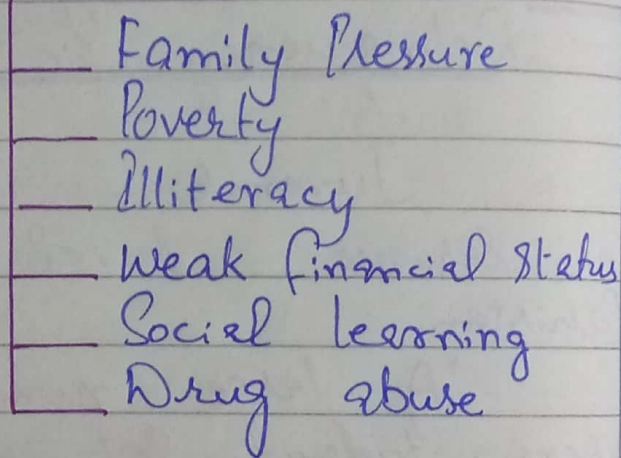 Family Pressure
Poverty
Illiteracy
Weak financial status
Social learning
Drug abuse